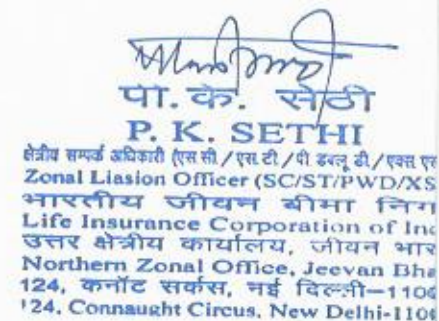 पी. के. सेठी
P. K. SETHI
क्षेत्रीय सम्पर्क अधिकारी (एस सी./एस.टी/पी डबलू डी/एक्स एस
Zonal Liasion Officer (SC/ST/PWD/XS
भारतीय जीवन बीमा निग
Life Insurance Corporation of Inc
उत्तर क्षेत्रीय कार्यालय, जीवन भार
Northern Zonal Office, Jeevan Bha
124, कनॉट सर्कस, नई दिल्ली-110
124, Connaught Circus, New Delhi-110